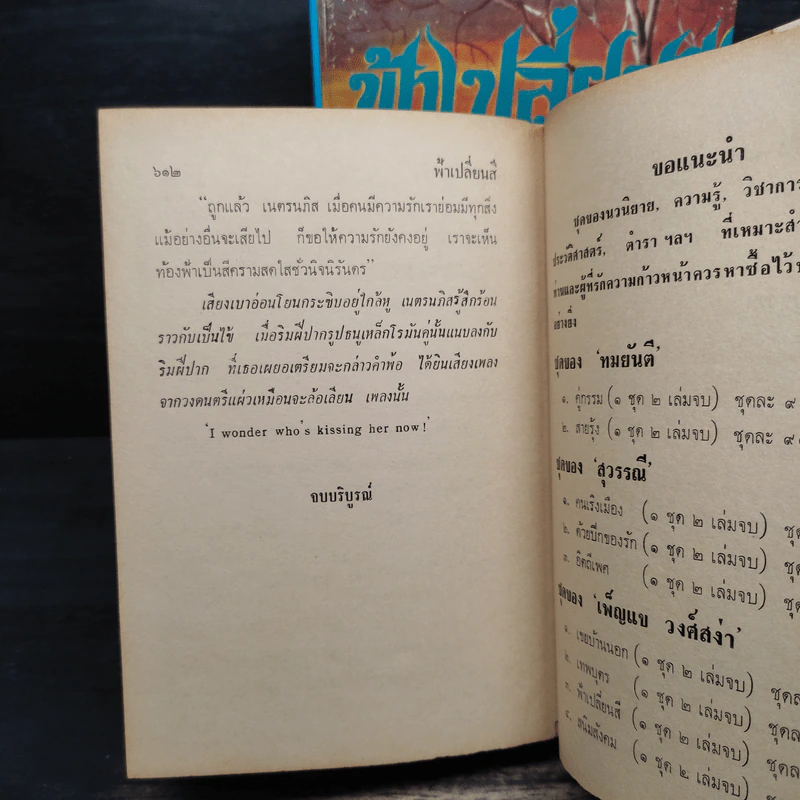 ฟ้าเปลี่ยนสี
๖๑๒
ฟ้าเปลี่ยนสี
“ถูกแล้ว เนตรนภิส เมื่อคนมีความรักเราย่อมมีทุกสิ่ง
แม้อย่างอื่นจะเสียไป ก็ขอให้ความรักยังคงอยู่ เราจะเห็น
ท้องฟ้าเป็นสีครามสดใสชั่วนิจนิรันดร”
เสียงเบาอ่อนโยนกระซิบอยู่ใกล้หู เนตรนภิสรู้สึกร้อน
ราวกับเป็นไข้ เมื่อริมฝีปากรูปธนูเหล็กโรมันคู่นั้นแนบลงกับ
ริมฝีปาก ที่เธอเผยอเตรียมจะกล่าวคำพ้อ ได้ยินเสียงเพลง
จากวงดนตรีแผ่วเหมือนจะล้อเลียน เพลงนั้น
‘I wonder who’s kissing her now!’
จบบริบูรณ์
ขอแนะนำ
ชุดของนวนิยาย, ความรู้, วิชาการ
ประวัติศาสตร์, ตำรา ฯลฯ ที่เหมาะสำ
ท่านและผู้ที่รักความก้าวหน้าควรหาซื้อไว้
อย่างยิ่ง
ชุดของ ‘ทมยันตี’
๑. คู่กรรม (๑ ชุด ๒ เล่มจบ) ชุดละ ๙
๒. สายรุ้ง (๑ ชุด ๒ เล่มจบ) ชุดละ ๙
ชุดของ ‘สุวรรณี’
๑. คนเริงเมือง (๑ ชุด ๒ เล่มจบ) ชุ
๒. ด้วยปีกของรัก (๑ ชุด ๒ เล่มจบ) ชุ
๓. อิตถีเพศ (๑ ชุด ๒ เล่มจบ) ชุด
ชุดของ ‘เพ็ญแข วงศ์สง่า’
๑. เขยบ้านนอก (๑ ชุด ๒ เล่มจบ) ชุดล
๒. เทพบุตร (๑ ชุด ๒ เล่มจบ) ชุด
๓. ฟ้าเปลี่ยนสี (๑ ชุด ๒ เล่มจบ) ชุด
๔. สนิมสังคม (๑ ชุด ๒ เล่มจบ) ชุด